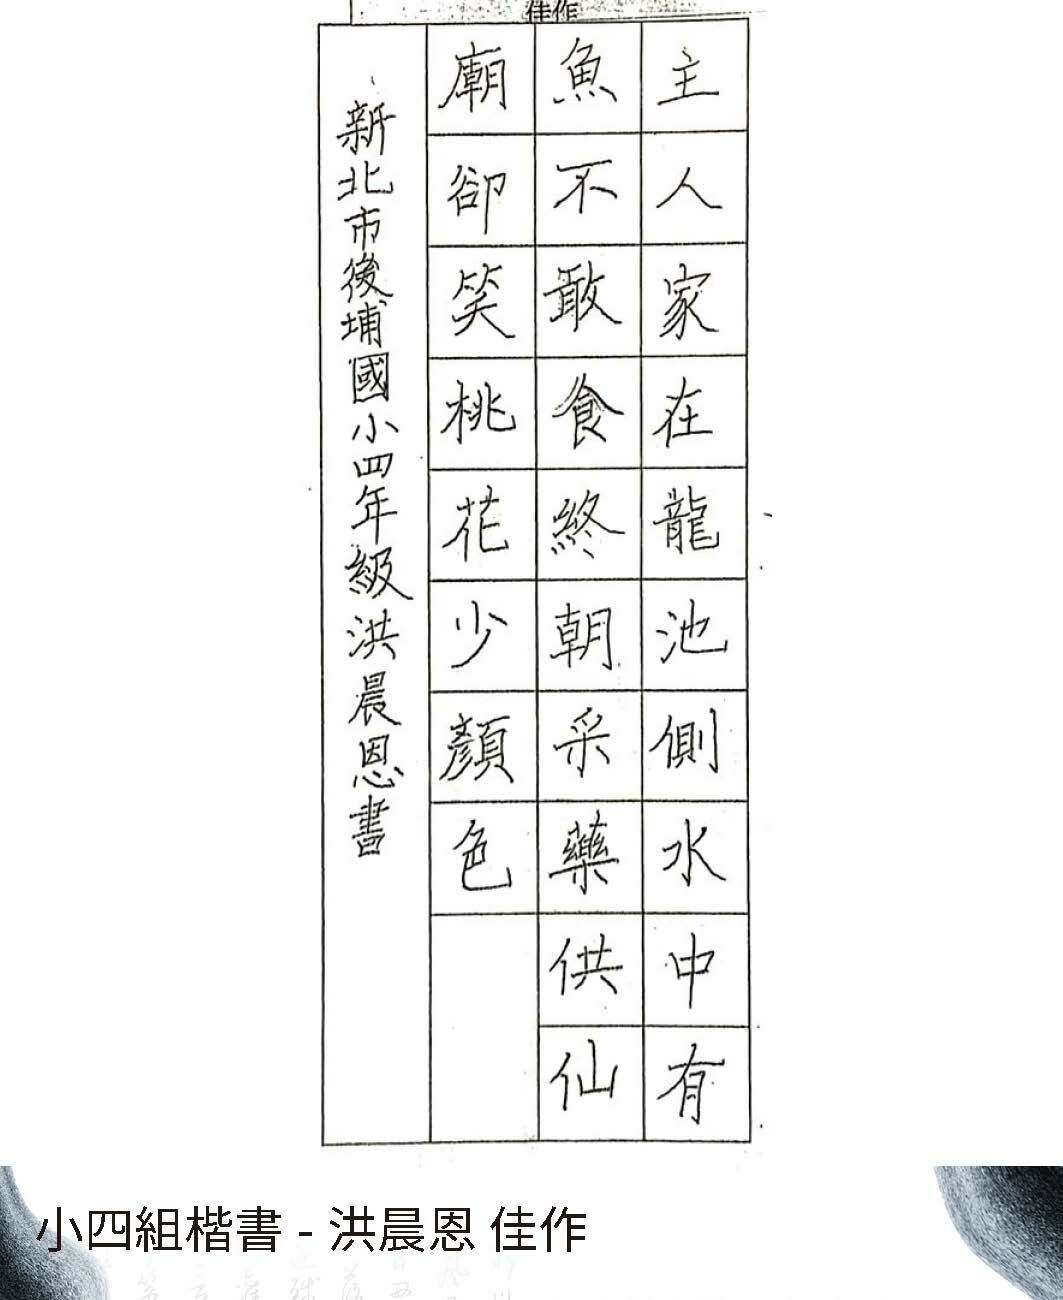 佳作
主人家在龍池側水中有
魚不敢食終朝采藥供仙
廟卻笑桃花少顏色
新北市後埔國小四年級洪晨恩書
小四組楷書 - 洪晨恩 佳作